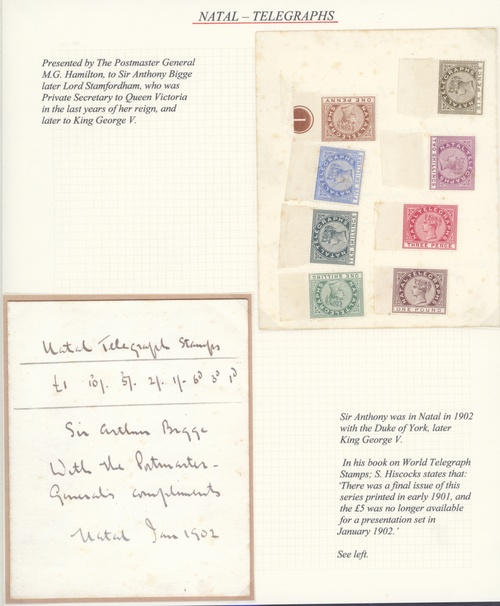 NATAL – TELEGRAPHS
Presented by The Postmaster General
M.G. Hamilton, to Sir Anthony Bigge
later Lord Stamfordham, who was
Private Secretary to Queen Victoria
in the last years of her reign, and
later to King George V.
NATAL TELEGRAPHS
1
NATAL TELEGRAPHS
ONE PENNY
NATAL TELEGRAPHS
TWO SHILLINGS
NATAL TELEGRAPHS
FIVE SHILLINGS
NATAL TELEGRAPHS
TEN SHILLINGS
NATAL TELEGRAPHS
THREE PENCE
NATAL TELEGRAPHS
ONE SHILLING
NATAL TELEGRAPHS
ONE POUND
Natal Telegraph Stamps
£1 10/. 5/. 2/. 1/- 6d 3d 1d
Sir Arthur Bigge
With the Postmaster-
General's compliments
Natal Jan 1902
Sir Anthony was in Natal in 1902
with the Duke of York, later
King George V.
In his book on World Telegraph
Stamps; S. Hiscocks states that:
'There was a final issue of this
series printed in early 1901, and
the £5 was no longer available
for a presentation set in
January 1902.'
See left.